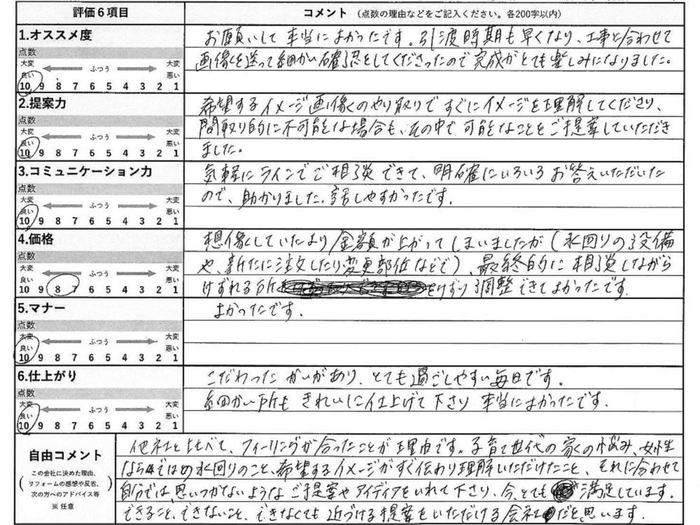 評価6項目 コメント（点数の理由などをご記入ください。各200字以内）
1.オススメ度
点数
大変良い ふつう 大変悪い
10 9 8 7 6 5 4 3 2 1
お願いして本当によかったです。引渡時期も早くなり、工事と合わせて
画像を送って細かい確認をしてくださったので完成がとても楽しみになりました。
2.提案力
点数
大変良い ふつう 大変悪い
10 9 8 7 6 5 4 3 2 1
希望するイメージ画像のやり取りですぐにイメージを理解してくださり、
間取り的に不可能な場合も、その中で可能なことをご提案していただき
ました。
3.コミュニケーション力
点数
大変良い ふつう 大変悪い
10 9 8 7 6 5 4 3 2 1
気軽にラインでご相談できて、明確にいろいろお答えいただいた
ので、助かりました。話しやすかったです。
4.価格
点数
大変良い ふつう 大変悪い
10 9 8 7 6 5 4 3 2 1
想像していたより金額が上がってしまいましたが（水回りの設備
や、新たに注文したり変更部位などで）、最終的に相談しながら
けずれる所をけずり調整できてよかったです。
5.マナー
点数
大変良い ふつう 大変悪い
10 9 8 7 6 5 4 3 2 1
よかったです。
6.仕上がり
点数
大変良い ふつう 大変悪い
10 9 8 7 6 5 4 3 2 1
こだわったかいがあり、とても過ごしやすい毎日です。
細かい所もきれいに仕上げて下さり本当によかったです。
自由コメント
（この会社に決めた理由、
リフォームの感想や反省、
次の方へのアドバイス等）
※ 任意
他社と比べて、フィーリングが合ったことが理由です。子育て世代の家の悩み、女性
ならではの水回りのこと、希望するイメージがすぐ伝わり理解いただけたこと、それに合わせて
自分では思いつかないようなご提案やアイディアをいれて下さり、今、とても満足しています。
できること、できないこと、できなくても近づける提案をいただける会社だと思います。